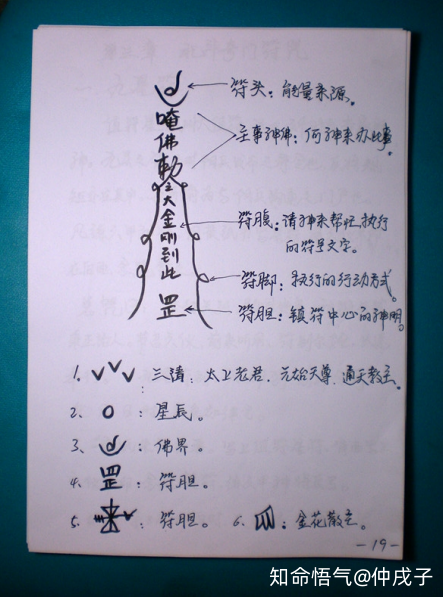 符头：能量来源。
唵
佛
勅
主事神佛：何神来办此事。
金
刚
到
此
符腹：请神来帮忙执行
的符号文字。
符脚：执行的行动方式。
罡
符胆：镇符中心的神明。
1. 三清：太上老君、元始天尊、通天教主。
2. 星辰。
3、佛界。
4. 罡：符胆。
5. 符胆。 6. 金花散完。
-19-
知命悟气@仲戌子